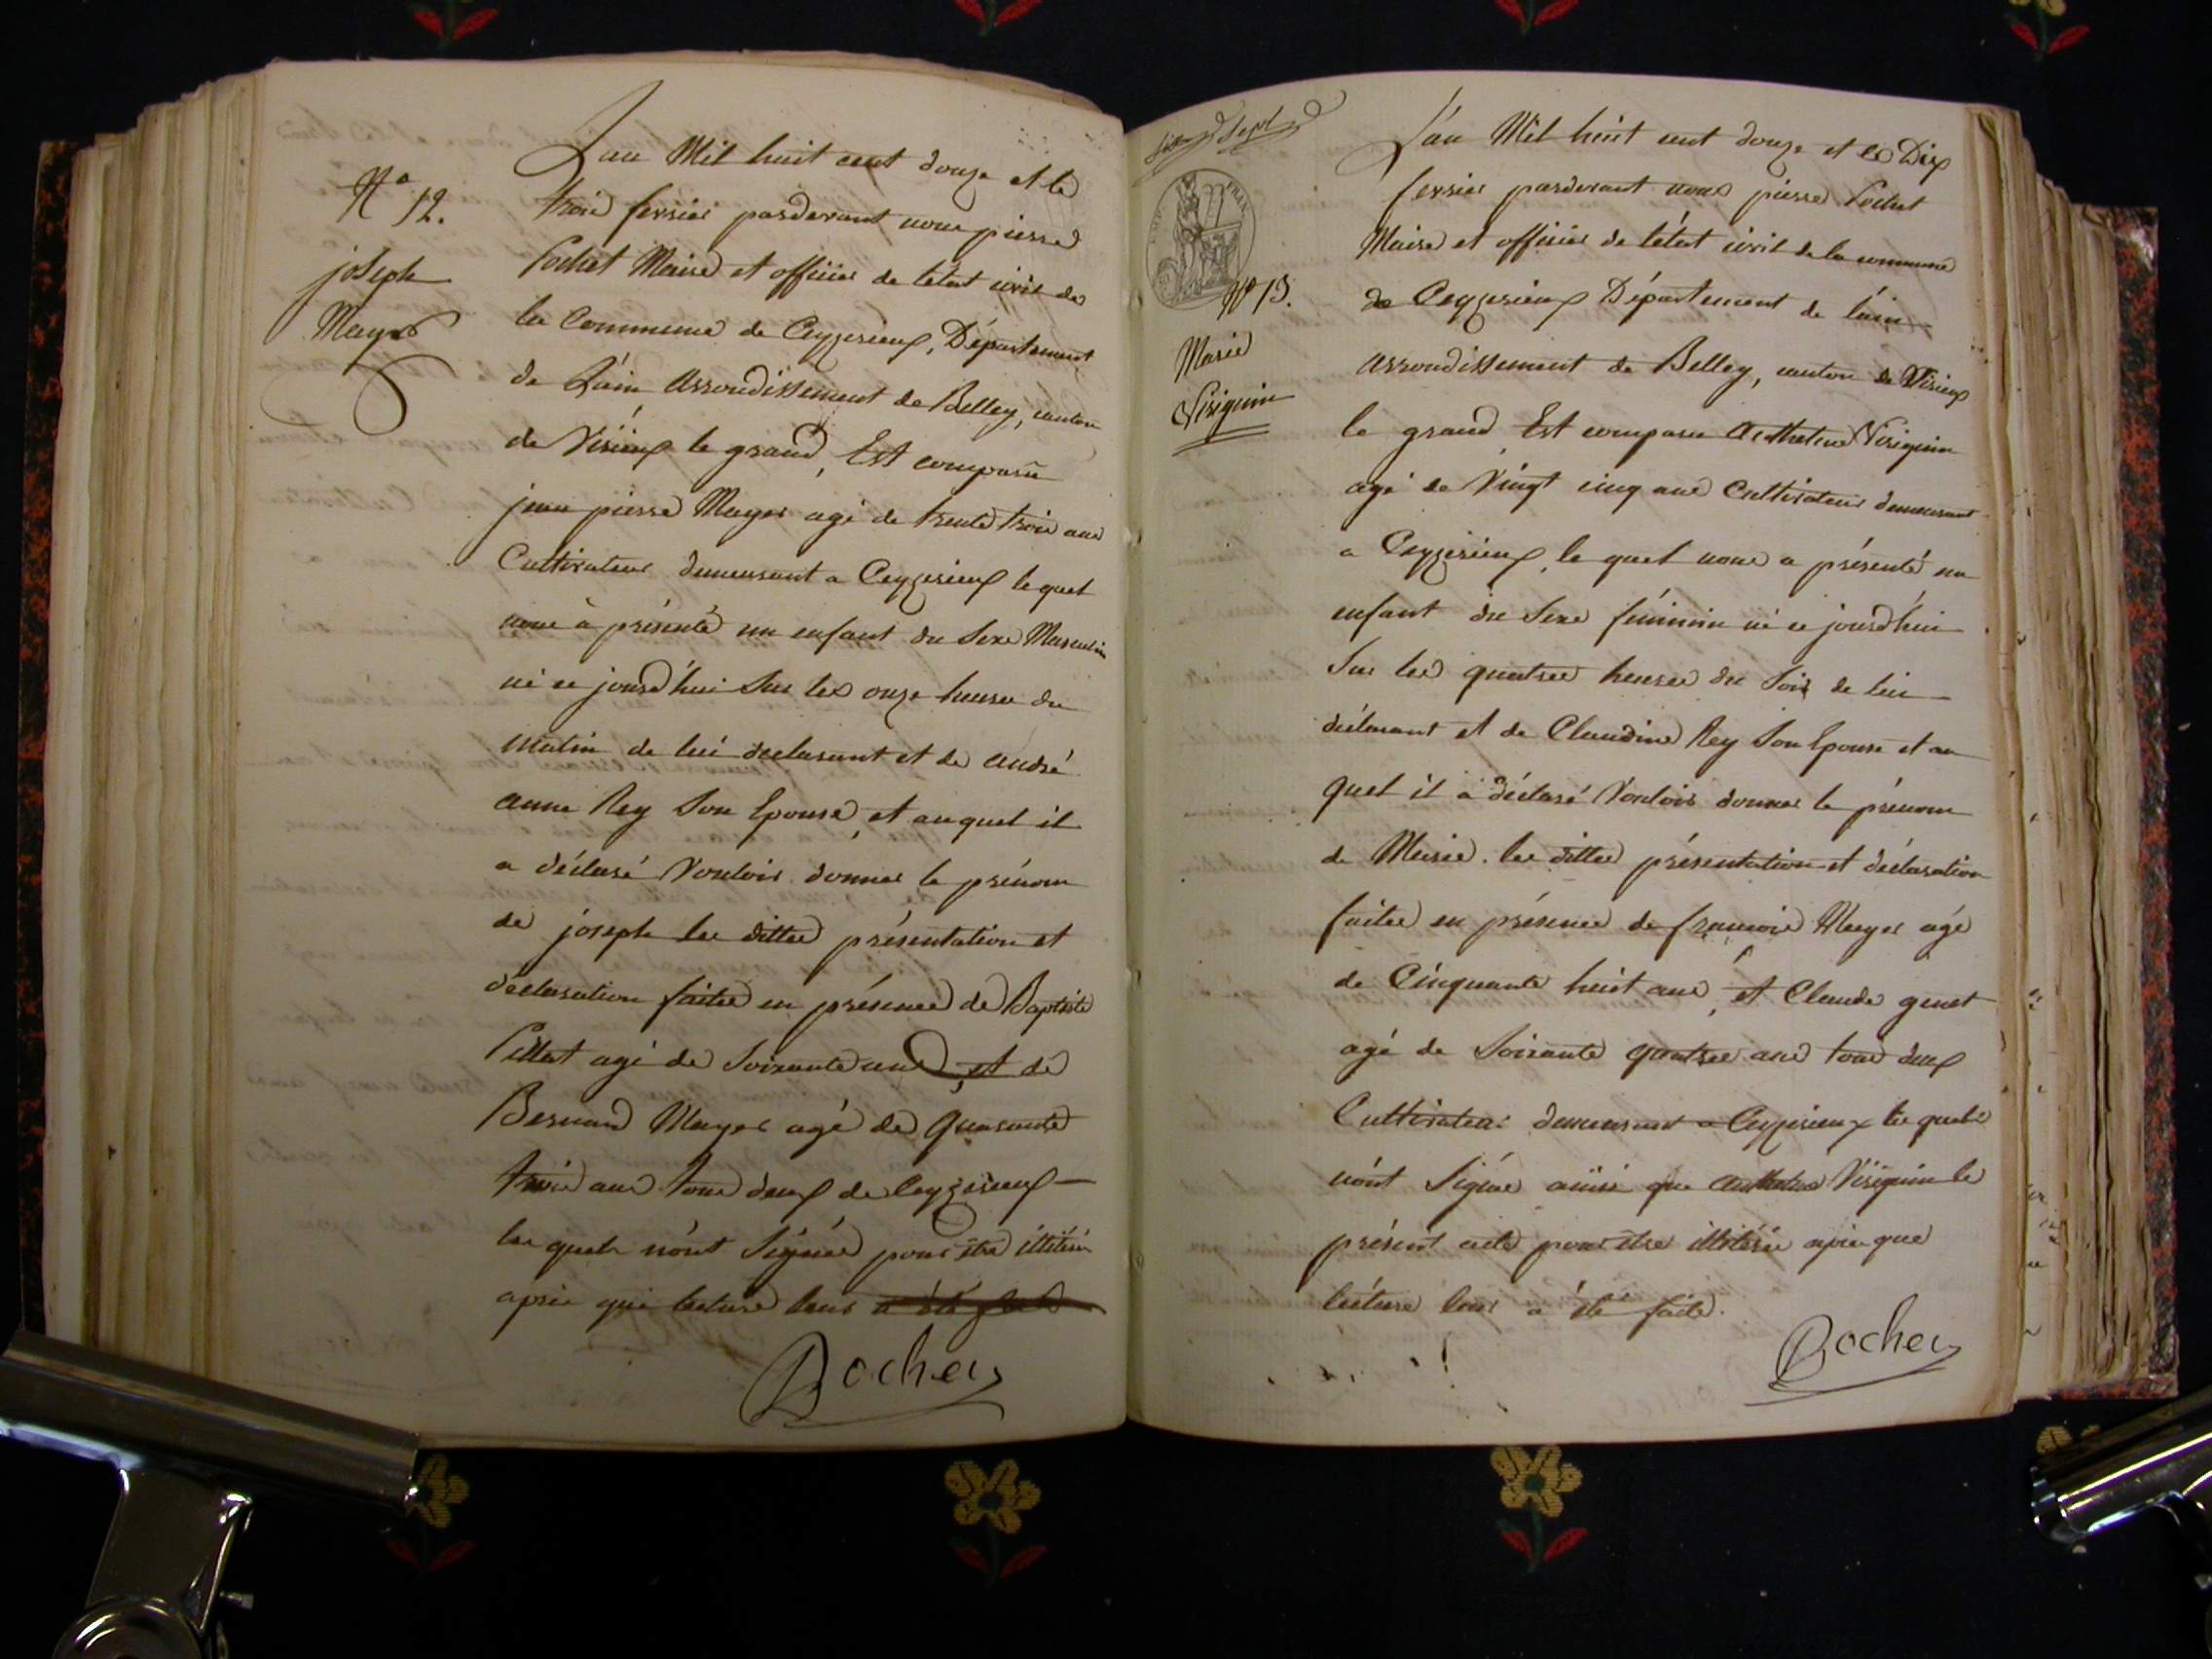 N° 12.
joseph
Mayer
L'an Mil huit cent douze et le
trois fevrier pardevant nous pierre
Pochet Maire et officier de l'état civil de
la Commune de Ceyzerieux, Département
de L'ain Arrondissement de Belley, canton
de Virieux le grand, Est comparu
jean pierre Mayer agé de trente trois ans
Cultivateur demeurant a Ceyzerieux le quel
nous à présenté un enfant du Sexe Masculin
né ce jourd'hui Sur les onze heures du
matin de lui declarant et de andré
anne Rey Son Epouse, et auquel il
a déclaré Vouloir donner le prénom
de joseph les dittes présentation et
déclaration faites en présence de Baptiste
Pillat agé de Soixante ans, et de
Bernard Mayer agé de Quarante
trois ans tous deux de Ceyzerieux
les quels n'ont Signés pour être illitéré
après que lecture leur a été faite
Pochet
N° 13.
Marie
Viriguin
L'an Mil huit cent douze et le Dix
fevrier pardevant nous pierre Pochet
Maire et officier de l'état civil de la commune
de Ceyzerieux Département de l'ain
arrondissement de Belley, canton de Virieux
le grand, Est comparu Anthelme Viriguin
agé de Vingt cinq ans Cultivateur demeurant
a Ceyzerieux, le quel nous a présenté un
enfant du Sexe féminin né ce jourd'hui
Sur les quatres heures du Soir de lui
déclarant et de Claudine Rey Son Epouse et au
quel il a déclaré Vouloir donner le prénom
de Marie. les dittes présentation et déclaration
faites en présence de francois Mayer agé
de Cinquante huit ans, et Claude genet
agé de Soixante quatres ans tous deux
Cultivateur demeurant a Ceyzerieux les quels
n'ont Signés ainsi que anthelme Viriguin le
présent acte pour etre illitéré après que
lecture leur a été faite.
Pochet